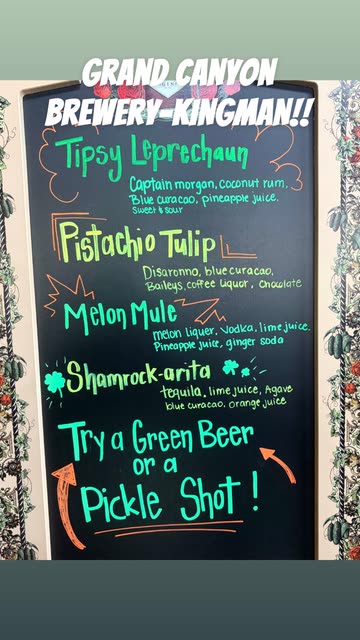 GRAND CANYON
BREWERY-KINGMAN!!
Tipsy Leprechaun
Captain morgan, coconut rum,
Blue curacao, pineapple juice.
Sweet & sour
Pistachio Tulip
Disaronno, blue curacao,
Baileys, coffee liquor, chocolate
Melon Mule
melon liquer, vodka, lime juice.
Pineapple juice, ginger soda
Shamrock-arita
tequila, lime juice, Agave
blue curacao, orange juice
Try a Green Beer
or a
Pickle Shot!